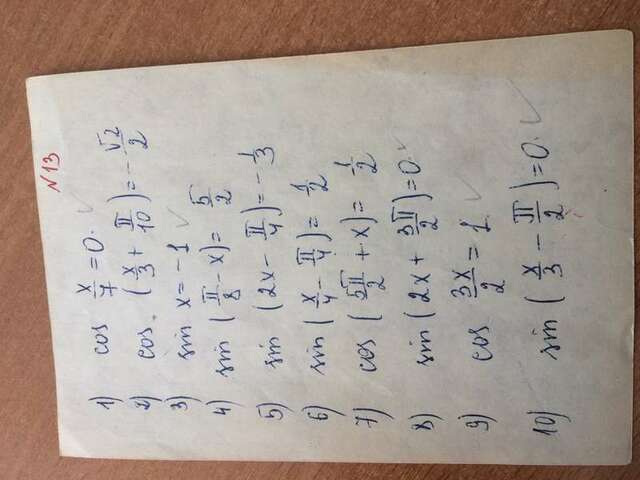 N13
1) cos x/7 = 0.
2) cos. (x/3 + π/10) = - √2/2
3) sin x = -1
4) sin (π/8 - x) = 5/2
5) sin (2x - π/4) = - 1/3
6) sin (x/4 - π/4) = 1/2
7) cos (5π/2 + x) = 1/2
8) sin (2x + 3π/2) = 0.
9) cos 3x/2 = 1
10) sin (x/3 - π/2) = 0.